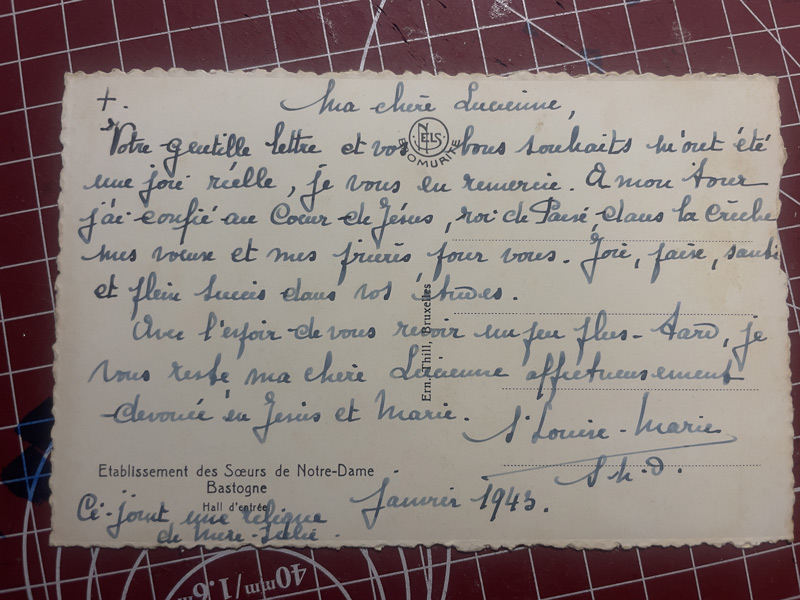 +. Ma chère Lucienne,
Votre gentille lettre et vos bons souhaits m'ont été
une joie réelle, je vous en remercie. A mon tour
j'ai confié au Coeur de Jésus, roi de Paix, dans la crèche
mes voeux et mes prières pour vous. Joie, paix, santé
et plein succès dans vos études.
Avec l'espoir de vous revoir un peu plus-tard, je
vous reste ma chère Lucienne affectueusement
dévouée en Jésus et Marie.
Sr Louise-Marie
S.N.D.
Janvier 1943.
Ci-joint une relique
de Mère-Julie.
NELS
BROMURITE
Ern. Thill, Bruxelles
Etablissement des Sœurs de Notre-Dame
Bastogne
Hall d'entrée
40mm/1.6